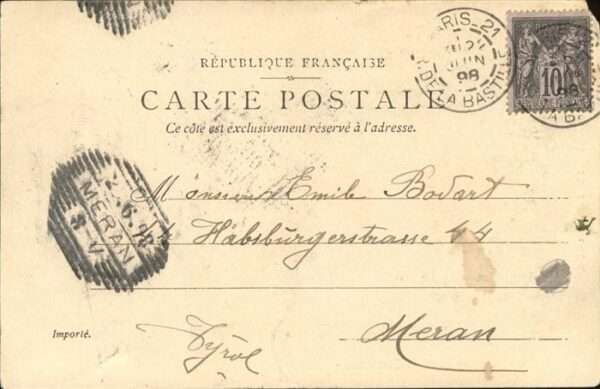 PARIS_21
JUIN
98
DE LA BASTILLE
10
RÉPUBLIQUE FRANÇAISE
CARTE POSTALE
Ce côté est exclusivement réservé à l'adresse.
MERAN
Monsieur Emile Bodart
Habsburgerstrasse 44
Meran
Tyrol
Importé.